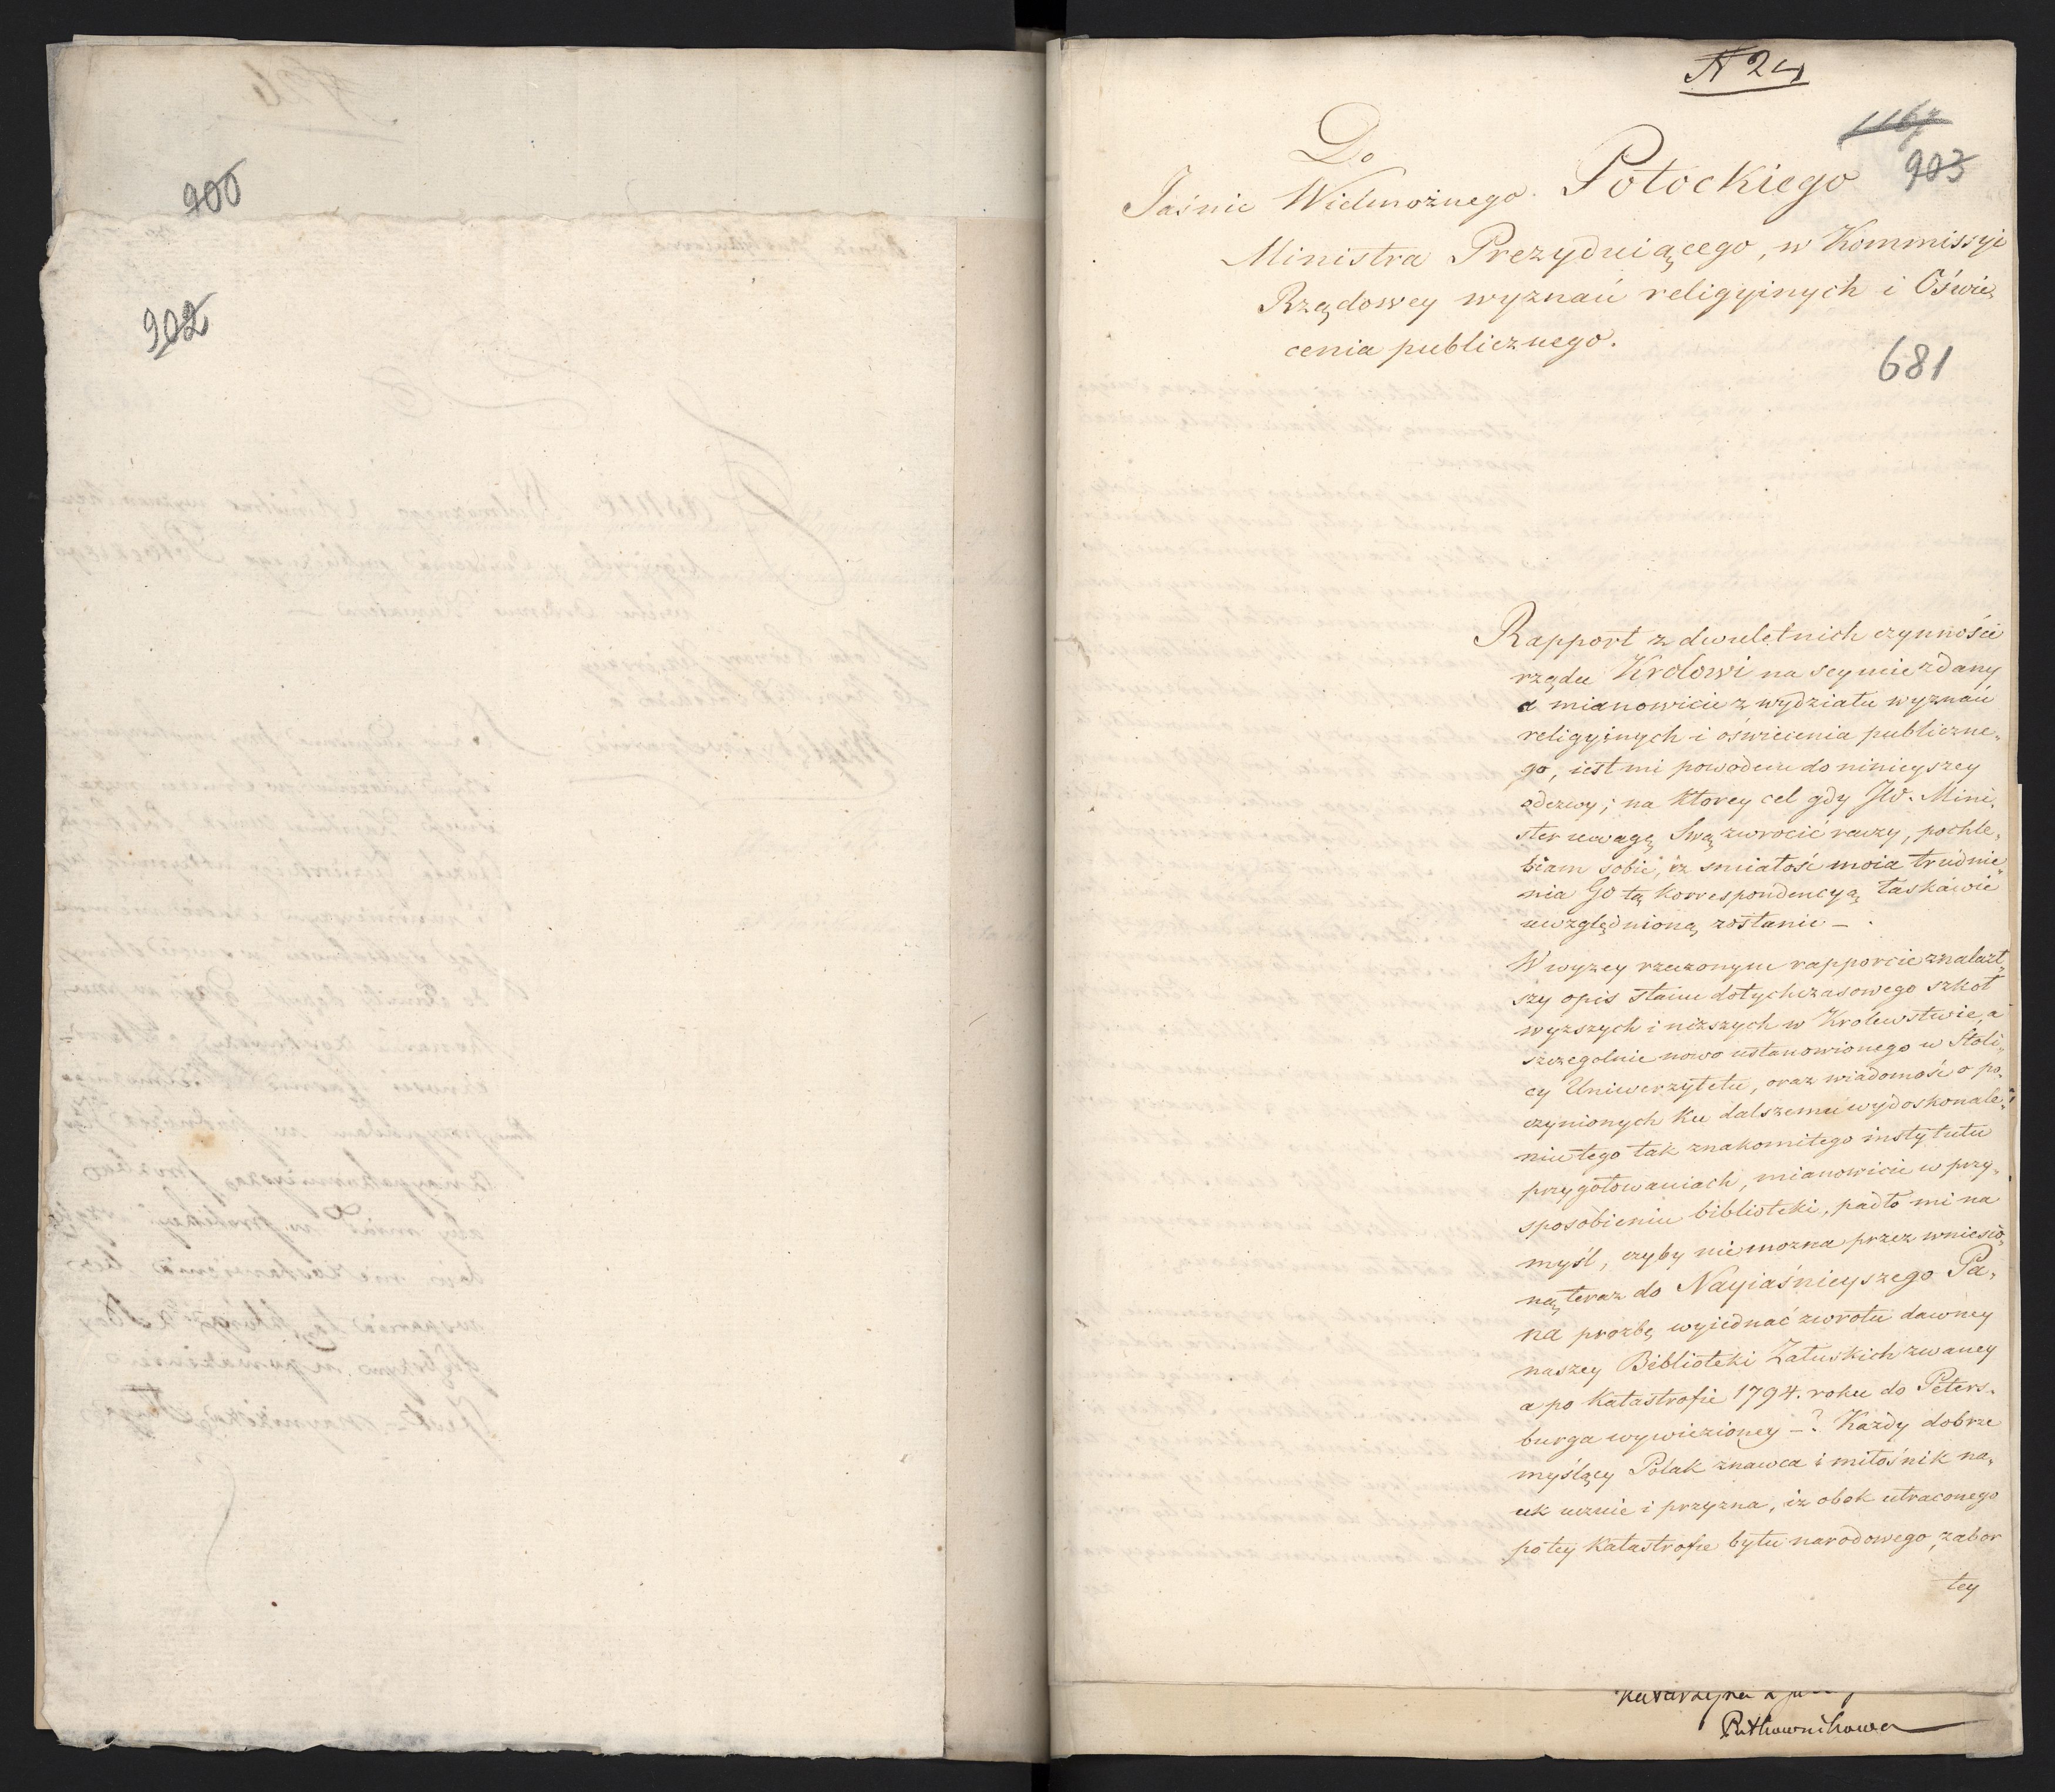 900
902
N 24
1167
903
Do
Jaśnie Wielmożnego Potockiego
Ministra Prezyduiącego, w Kommissyi
Rządowey wyznań religyinych i Oświe„
cenia publicznego.
681
Rapport z dwuletnich czynności
rządu Krolowi na seymie zdany
a mianowicie z wydziału wyznań
religyinych i oświecenia publiczne„
go, iest mi powodem do ninieyszey
odezwy; na ktorey cel gdy JW. Mini„
ster uwagę Swą zwrocić raczy, pochle„
biam sobie, iż smiałość moia trudnie„
nia Go tą korrespondencyą łaskawie
uwzględnioną zostanie —
W wyzey rzeczonym rapporcie znalazł„
szy opis stanu dotychczasowego szkoł
wyzszych i niższych w Królewstwie, a
szczegolnie nowo ustanowionego w Stoli„
cy Uniwerzytetu, oraz wiadomość o po„
czynionych ku dalszemu wydoskonale„
niu tego tak znakomitego instytutu
przygotowaniach, mianowicie w przy„
sposobieniu biblioteki, padło mi na
myśl, czyby nie mozna przez wniesio„
ną teraz do Nayiaśnieyszego Pa„
na prozbę wyiednać zwrotu dawney
naszey Biblioteki Załuskich zwaney
a po katastrofie 1794. roku do Peters„
burga wywiezioney —? Kazdy dobrze
myślący Polak znawca i miłośnik na„
uk uzna i przyzna, iz obok utraconego
po tey katastrofie bytu narodowego, zabor
tey
Pułkownikowa